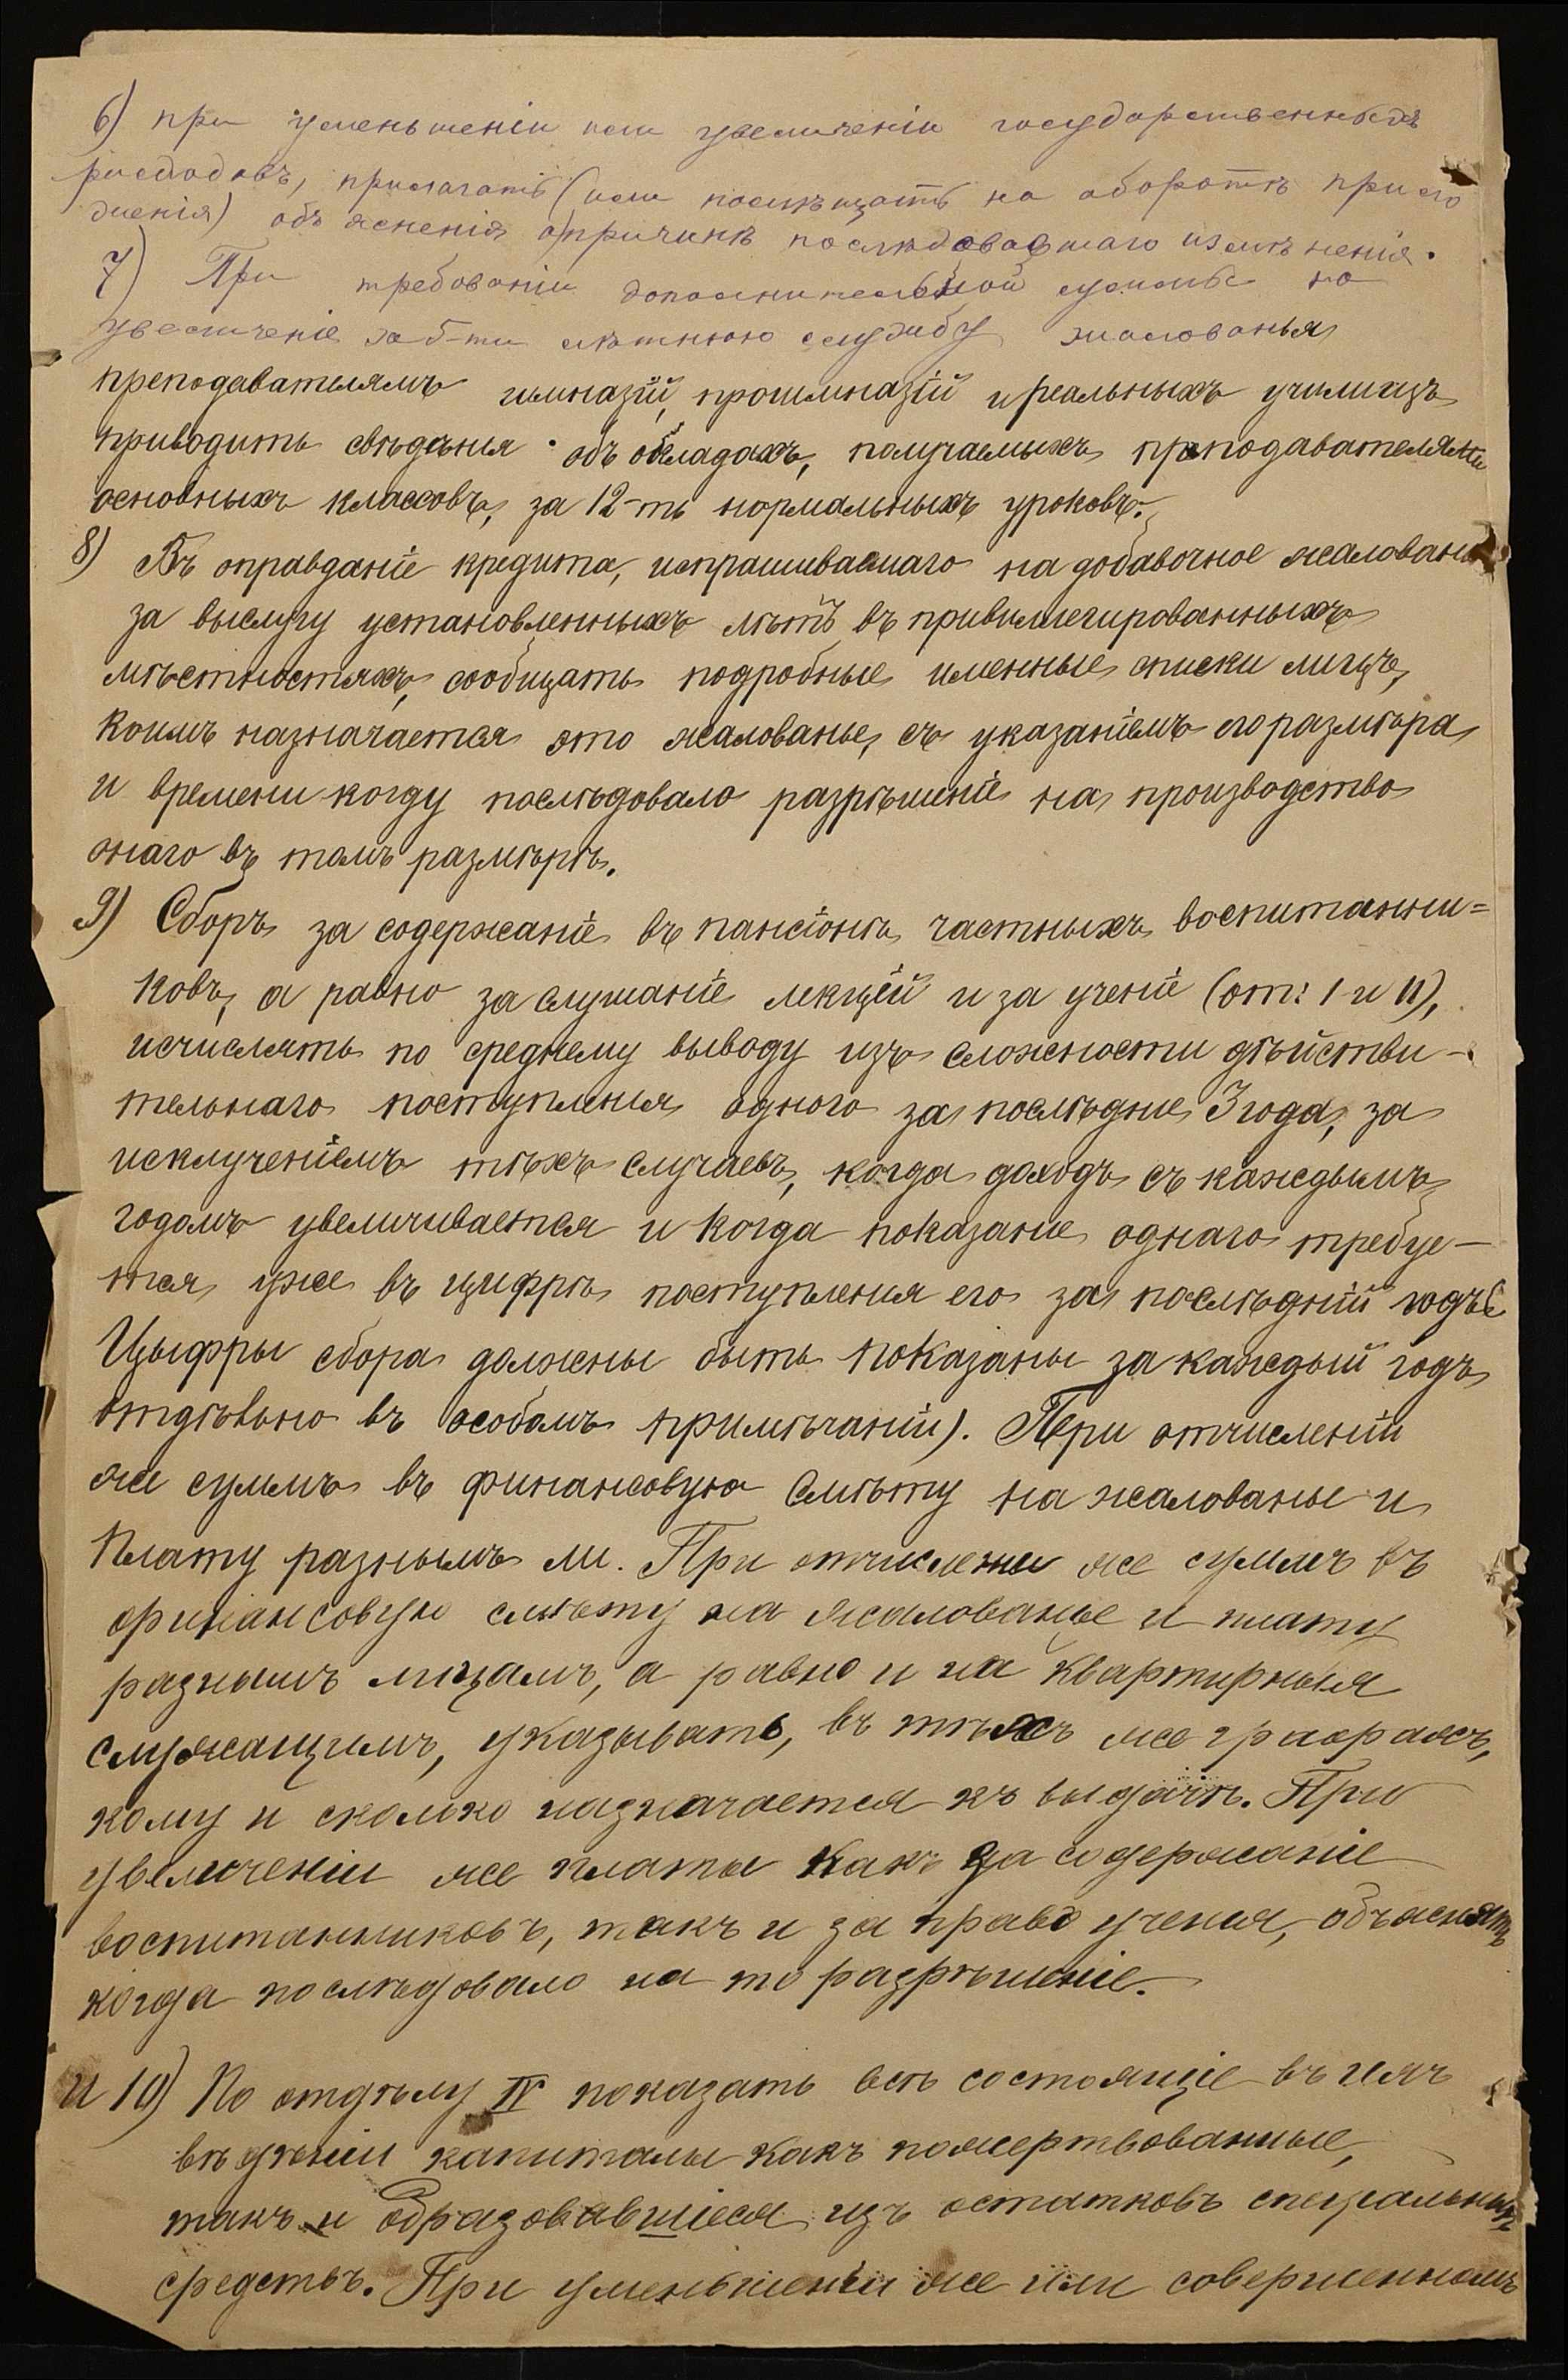 6) при уменьшеніи или увеличеніи государственныхъ
расходовъ, прилагать (или помѣщать на оборотѣ прило
женія) объясненія о причинѣ послѣдовавшаго измѣненія.
7) При требованіи дополнительной суммы на
увеличеніе за 5-ти лѣтнюю службу жалованья
преподавателямъ гимназій, прогимназій и реальныхъ училищъ
приводить свѣдѣнія объ окладахъ, получаемыхъ преподавателями
основныхъ классовъ, за 12-ть нормальныхъ уроковъ.
8) Въ оправданіе кредита, испрашиваемаго на добавочное жалованье
за выслугу установленныхъ лѣтъ въ привиллегированныхъ
мѣстностяхъ, сообщать подробные именные списки лицъ,
коимъ назначается это жалованье, съ указаніемъ его размѣра
и времени когду послѣдовало разрѣшеніе на производство
онаго въ томъ размѣрѣ.
9) Сборъ за содержаніе въ пансіонѣ частныхъ воспитанни=
ковъ, а равно за слушаніе лекцій и за ученіе (от: I и II),
исчислять по среднему выводу изъ сложности дѣйстви-
тельнаго поступленія одного за послѣдніе 3 года, за
исключеніемъ тѣхъ случаевъ, когда доходъ съ каждымъ
годомъ увеличивается и когда показаніе однаго требуе-
тся уже въ цифрѣ поступленія его за послѣдній годъ
Цыфры сбора должны быть показаны за каждый годъ
отдѣльно въ особомъ примѣчаніи). При отчисленіи
же суммъ въ финансовую смѣту на жалованье и
плату разнымъ ли. При отчислены же суммъ въ
финансовую смѣту на жалованье и плату
разнымъ лицамъ, а равно и на квартирныя
служащимъ, указывать, въ тѣхъ же графахъ,
кому и сколько назначается къ выдачѣ. При
увеличеніи же платы какъ за содержаніе
воспитанниковъ, такъ и за право ученія, объяснять
когда послѣдовало на то разрѣшеніе.
и 10) По отдѣлу IV показать всѣ состоящіе въ ихъ
вѣдѣніи капиталы какъ пожертвованные,
такъ и образовавшіеся изъ остатковъ спеціальныхъ
средствъ. При уменьшеніи же или совершенномъ